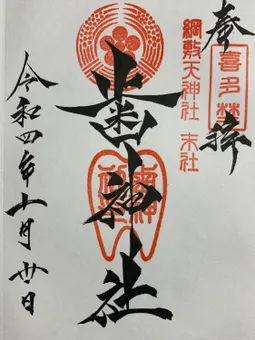 奉拝
喜多埜
綱敷天神社 末社
歯神社
歯神社
令和四年十一月廿日